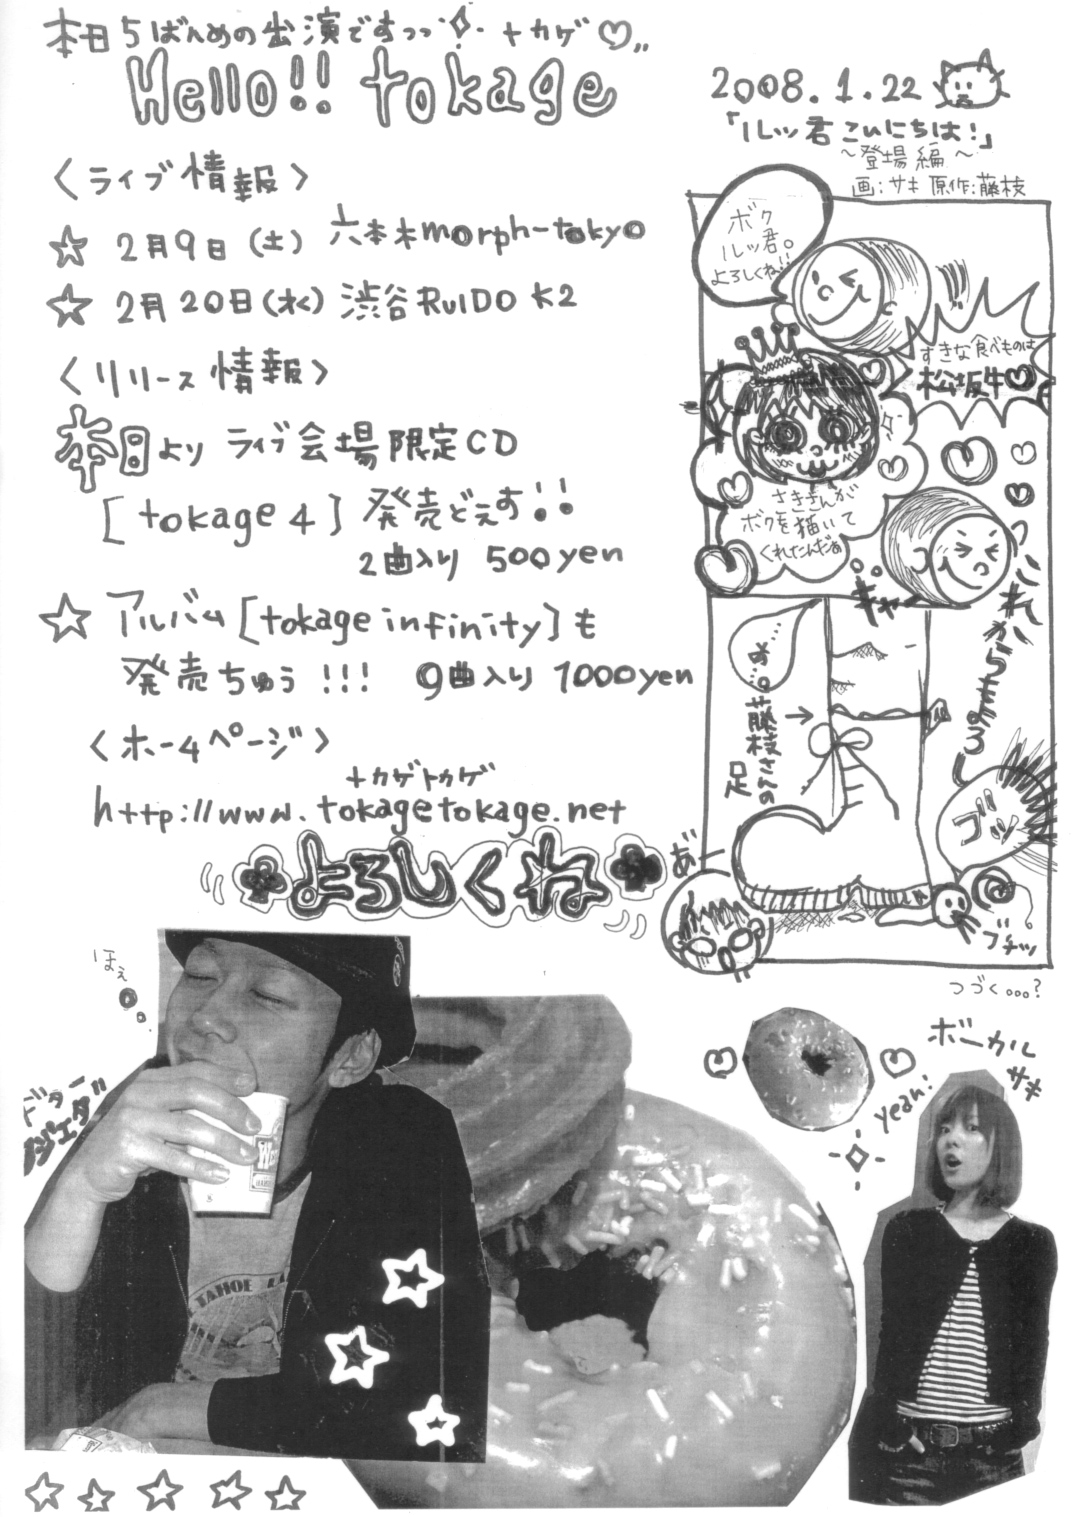 本日5ばんめの出演ですっっ トカゲ♡
Hello!! tokage
2008.1.22
「ルッ君こんにちは!」
～登場編～
画:サキ 原作:藤枝
〈ライブ情報〉
☆ 2月9日(土) 六本木morph-tokyo
☆ 2月20日(水) 渋谷RUIDO K2
〈リリース情報〉
本日より ライブ会場限定CD
[tokage 4] 発売どぇす!!
2曲入り 500yen
☆ アルバム [tokage infinity]も
発売ちゅう!!! 9曲入り 1000yen
〈ホームページ〉
トカゲトカゲ
http://www.tokagetokage.net
よろしくね
ボク
ルッ君。
よろしくね!!
すきな食べものは
松坂牛♡
さきさんが
ボクを描いて
くれたんだぁ
キャー
これからもよろし
あ。
藤枝さんの
足
ゴッ
あ゛ー
ブチッ
つづく...?
ほぇ
ボーカル
サキ
yeah!
TAHOE